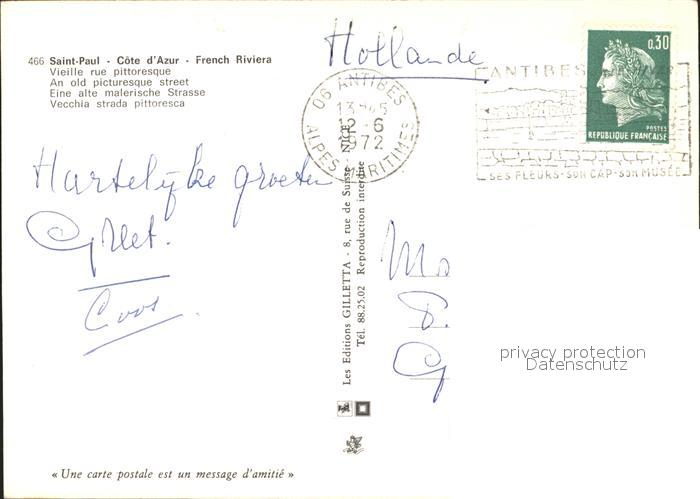 466 Saint-Paul - Côte d'Azur - French Riviera
Vieille rue pittoresque
An old picturesque street
Eine alte malerische Strasse
Vecchia strada pittoresca
Hollande
0,30
POSTES
RÉPUBLIQUE FRANÇAISE
06 ANTIBES
12-6
1972
ALPES MARITIMES
ANTIBES
SES FLEURS-SON CAP-SON MUSÉE
Hartelijke groeten
Greet.
Coos
Les Editions GILLETTA - 8, rue de Suisse - NICE
Tél. 88.25.02 Reproduction interdite
privacy protection
Datenschutz
« Une carte postale est un message d'amitié »